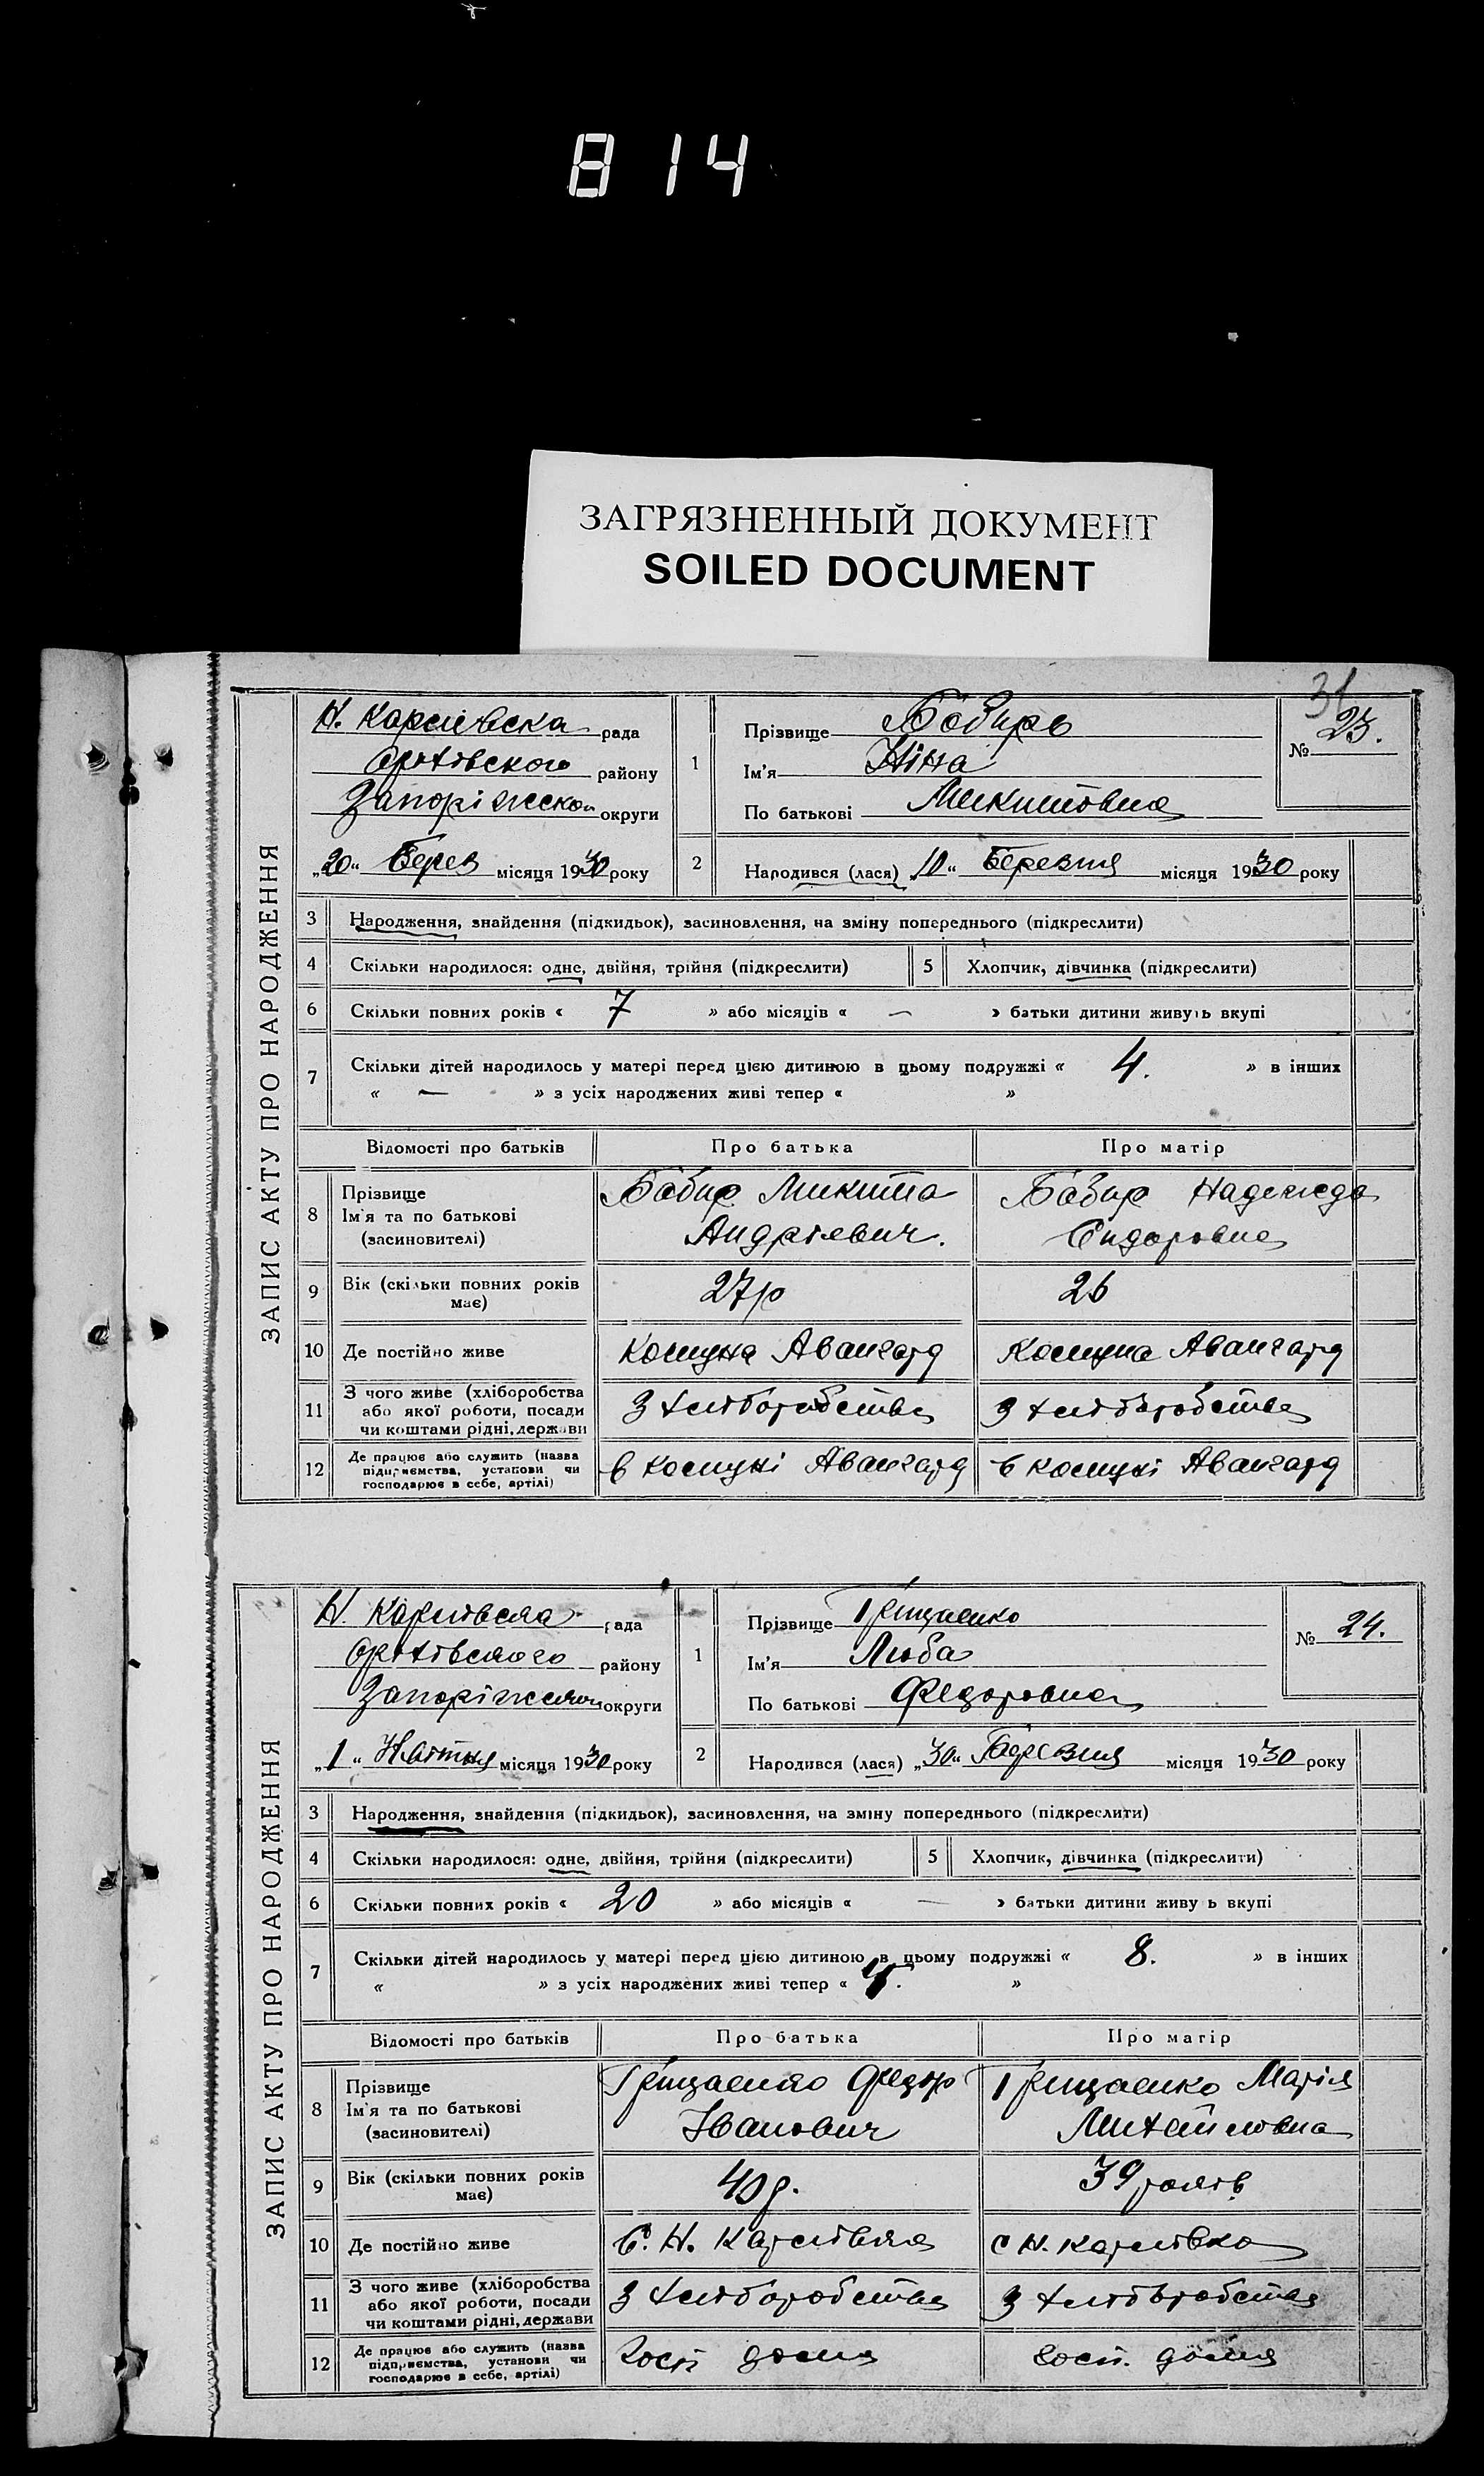 814
ЗАГРЯЗНЕННЫЙ ДОКУМЕНТ
SOILED DOCUMENT
31
ЗАПИС АКТУ ПРО НАРОДЖЕННЯ
Н. Карлівска рада
Оріхівського району
Запоріжскої округи
„20“ Берез місяця 1930 року
1 Прізвище Бабирь
Ім'я Ніна
По батькові Микитовна
№ 23.
2 Народився (лася) „10“ Березня місяця 1930 року
3 Народження, знайдення (підкидьок), засиновлення, на зміну попереднього (підкреслити)
4 Скільки народилося: одне, двійня, трійня (підкреслити) 5 Хлопчик, дівчинка (підкреслити)
6 Скільки повних років « 7 » або місяців « — » батьки дитини живуть вкупі
7 Скільки дітей народилось у матері перед цією дитиною в цьому подружжі « 4. » в інших
« — » з усіх народжених живі тепер « »
Відомості про батьків Про батька Про матір
8 Прізвище Ім'я та по батькові (засиновителі)
Бабир Микита Андріевич.
Бабир Надежда Сидоровна
9 Вік (скільки повних років має) 27р 26
10 Де постійно живе Комуна Авангард Комуна Авангард
11 З чого живе (хліборобства або якої роботи, посади чи коштами рідні, держави З хліборобства З хліборобства
12 Де працює або служить (назва підприємства, установи чи господарює в себе, артілі) в комуні Авангард в комуні Авангард
ЗАПИС АКТУ ПРО НАРОДЖЕННЯ
Н. Карлівська рада
Оріхівського району
Запоріжської округи
„1“ Квітня місяця 1930 року
1 Прізвище Грищаенко
Ім'я Люба
По батькові Федоровна
№ 24.
2 Народився (лася) „30“ Березня місяця 1930 року
3 Народження, знайдення (підкидьок), засиновлення, на зміну попереднього (підкреслити)
4 Скільки народилося: одне, двійня, трійня (підкреслити) 5 Хлопчик, дівчинка (підкреслити)
6 Скільки повних років « 20 » або місяців « — » батьки дитини живуть вкупі
7 Скільки дітей народилось у матері перед цією дитиною в цьому подружжі « 8. » в інших
« » з усіх народжених живі тепер « »
Відомості про батьків Про батька Про матір
8 Прізвище Ім'я та по батькові (засиновителі)
Грищаенко Федор Іванович
Грищаенко Марія Михайловна
9 Вік (скільки повних років має) 40 р. 39 років
10 Де постійно живе С. Н. Карлівка С Н. Карлівка
11 З чого живе (хліборобства або якої роботи, посади чи коштами рідні, держави З хліборобства З хліборобства
12 Де працює або служить (назва підприємства, установи чи господарює в себе, артілі) Госп дома Госп. дома